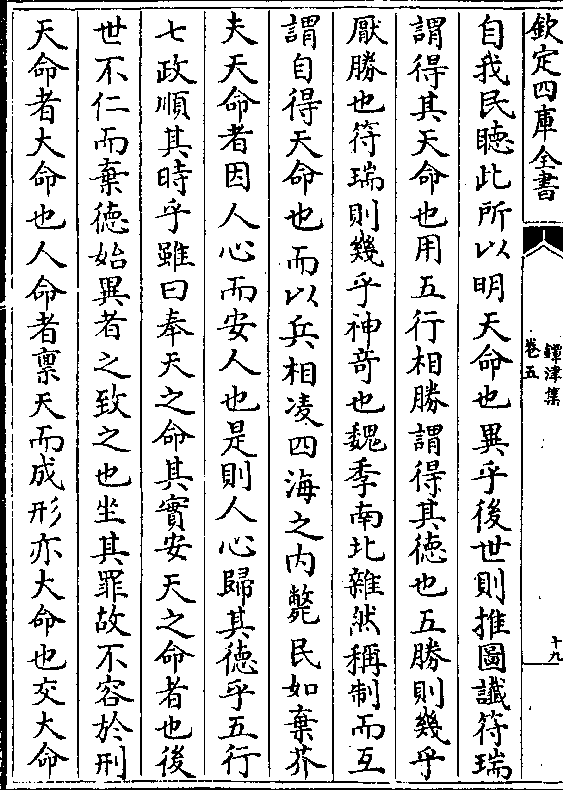 欽定四庫全書
鐔津集
卷五
十九
自我民聽此所以明天命也異乎後世則推圖讖符瑞
謂得其天命也用五行相勝謂得其德也五勝則幾乎
厭勝也符瑞則幾乎神竒也魏季南北雜然稱制而互
謂自得天命也而以兵相凌四海之内斃民如棄芥
夫天命者因人心而安人也是則人心歸其德乎五行
七政順其時乎雖曰奉天之命其實安天之命者也後
世不仁而棄德始異者之致之也坐其罪故不容於刑
天命者大命也人命者禀天而成形亦大命也交大命